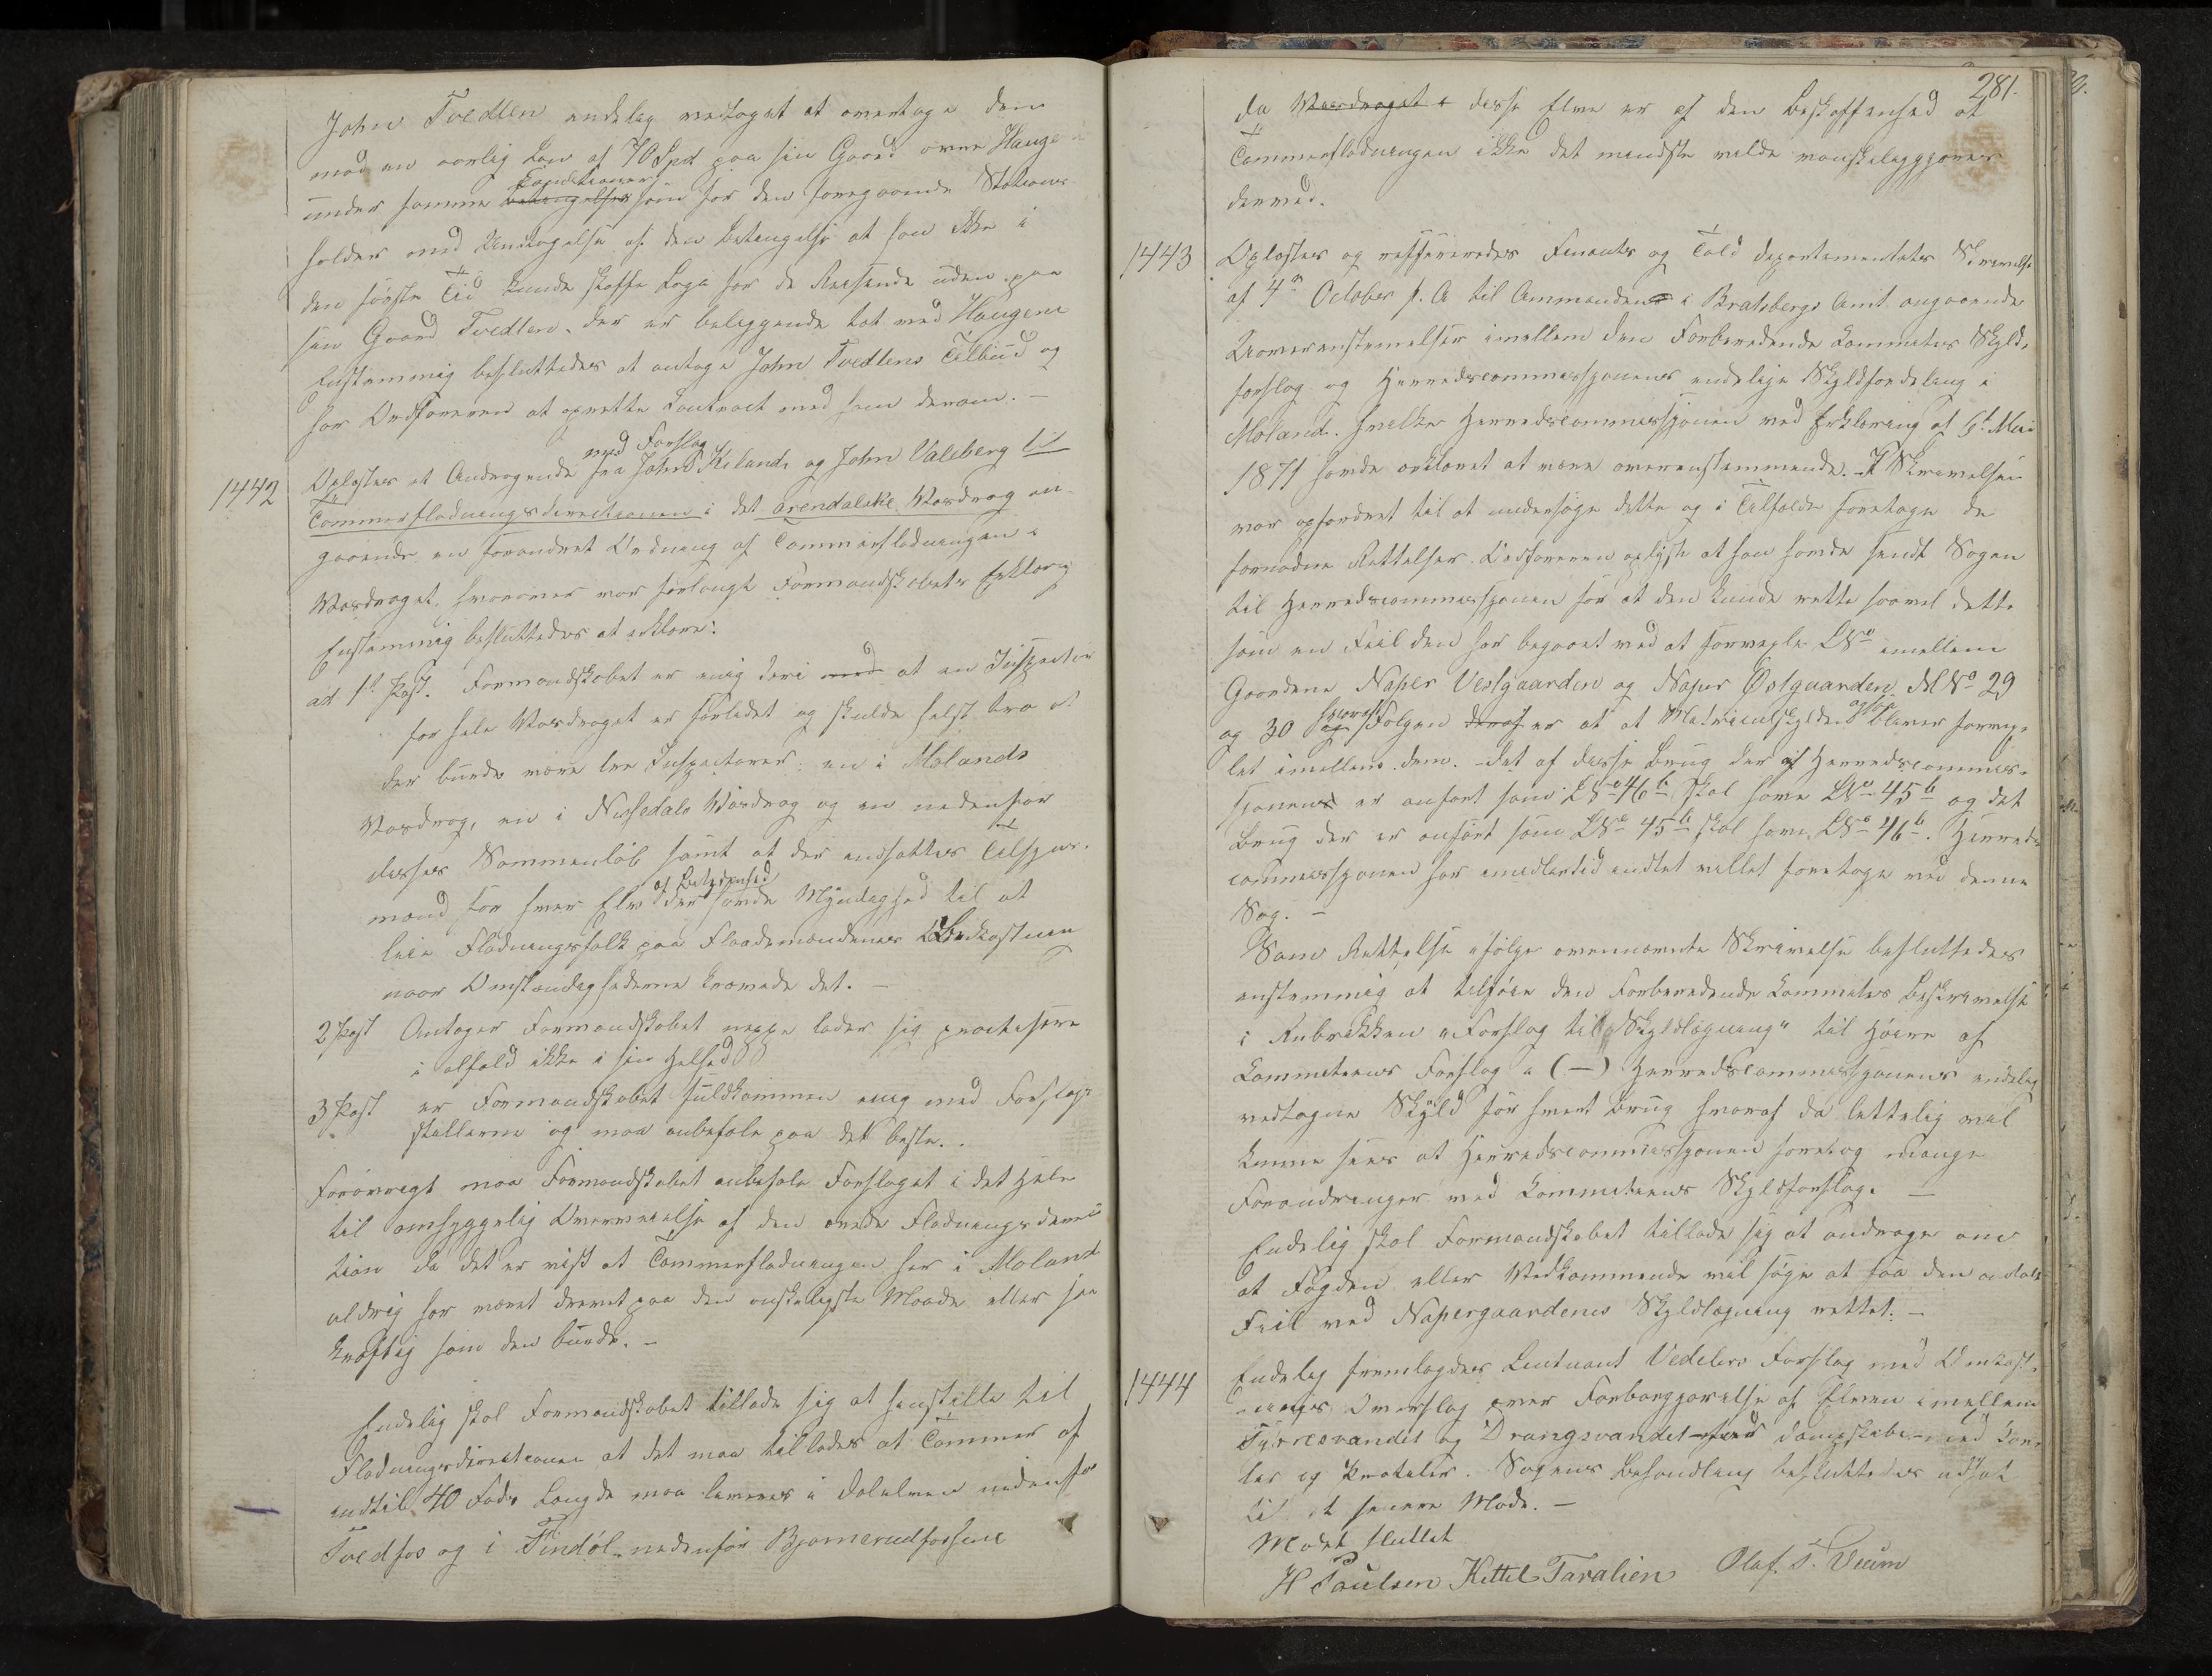 John Tvedten endelig vedtaget at overtage den
mod en aarlig Løn af 70 Spd paa sin Gaard over Hauge
under samme Conditioner som for den foregaaende Stations
holder med Undtagelse af den Betingelse at han ikke i
den første Tid kunde skaffe Loge for de Reisende uden paa
sin Gaard Tvedten, der er beliggende tæt ved Haugene
Enstemmig besluttedes at antage John Tvedtens Tilbud og
har Ordføreren at oprette Contract med ham derom. –
1442
Oplæstes et Andragende med Forslag fra John Kiland og John Valeberg til
Tømmerflødningsdirectionen i det arendalske Vasdrag an-
gaaende en forandret Ordning af Tømmerflødningen i
Vasdraget, hvorover var forlangt Formandskabets Erklæring
Enstemmig besluttedes at erklære:
ad 1ste Post. Formandskabet er enig deri med at en Inspectør
for hele Vasdraget er forledet og skulde helst tro at
der burde være tre Inspectører: en i Molands
Vasdrag, en i Nissedals Vasdrag og en nedenfor
disses Sammenløb samt at der ansættes Tilsyns-
mænd for hver Elv af Betydenhed der havde Myndighed til at
leie Flødningsfolk paa Flaademændenes Bekostning
naar Omstændighederne krævede det. –
2 Post Antager Formandskabet neppe lader sig practisere
i alfald ikke i sin Helhed
3 Post er Formandskabet fuldkommen enig med Forslags
stillerne og maa anbefale paa det beste.
Forøvrigt maa Formandskabet anbefale Forslaget i det Hele
til omhyggelig Overveielse af den ærede Flødningsdirec
tion da det er vist at Tømmerflødningen her i Moland
aldrig har været drevet paa den ønskeligste Maade eller saa
kraftig som den burde. –
Endelig skal Formandskabet tillade sig at henstille til
Flødningsdirectionen at det maa tillades at Tømmer af
indtil 40 Fods Længde maa leveres i Dalelven nedenfor
Tvedfos og i Findøl nedenfor Bjørnerudfossene
281.
da Vasdraget i disse Elve er af den Beskaffenhed at
Tømmerflødningen ikke det mindste vilde vanskeliggjøres
derved.
1443
Oplæstes og reffereredes Finants og Told departementets Skrivelse
af 4de October f. A til Ammanden i Bratsbergs Amt angaaende
Uoverensstemmelser imellem den Forberedende Kommites Skyld-
forslag og Herredscommissjonens endelige Skyldfordeling i
Moland. hvilke Herredscommissjonen ved Erklæring af 6te Mai
1871 havde erklæret at være overensstemmende. – I Skrivelsen
var opfordret til at undersøge dette og i Tilfælde foretage de
fornødne Rettelser. Ordføreren oplyste at han havde sendt Sagen
til Herredscommissjonen for at den kunde rette saavel dette
som en Feil den har begaaet ved at forvexle LNo imellem
Gaardene Naper Vestgaarden og Naper Østgaarden. MNo 29
og 30 hvoraf Følgen deraf er at at Matriculskylden ogsaa bliver forvex-
let imellem dem. – det af disse Brug der af Herredscommis-
sjonen er anført som LNo 46b skal have LNo 45b og det
Brug der er anført som LNo 45b skal have LNo 46b. Herreds
commissjonen har imidlertid indtet villet foretage ved denne
Sag. –
Som Rettelse ifølge ovennævnte Skrivelse besluttedes
enstemmig at tilføie den Forberedende Kommites Beskrivelse
i Rubrikken "Forslag til Skyldlægning" til Høire af
Kommiteens Forslag i (–) Herredscommissjonens endelig
vedtagne Skyld for hvert Brug hvoraf da lettelig vil
kunne sees at Herredscommissjonen foretog mange
Forandringer ved Kommiteens Skyldforslag. –
Endelig skal Formandskabet tillade sig at andrage om
at Fogden eller Vedkommende vil søge at faa den omtalte
Feil ved Napergaardenes Skyldlægning rettet. –
1444
Endelig fremlagdes Lieutnant Vedelers Forslag med Omkost-
nings Overslag over Farbargjørelse af Elven imellem
Fyrresvandet og Drangsvandet dampskibe med Kar-
ter og Profiler. Sagens Behandling besluttedes udsat
til et senere Møde. –
Mødet sluttet
H Paulsen Kettel Taralien Olaf T. Veum